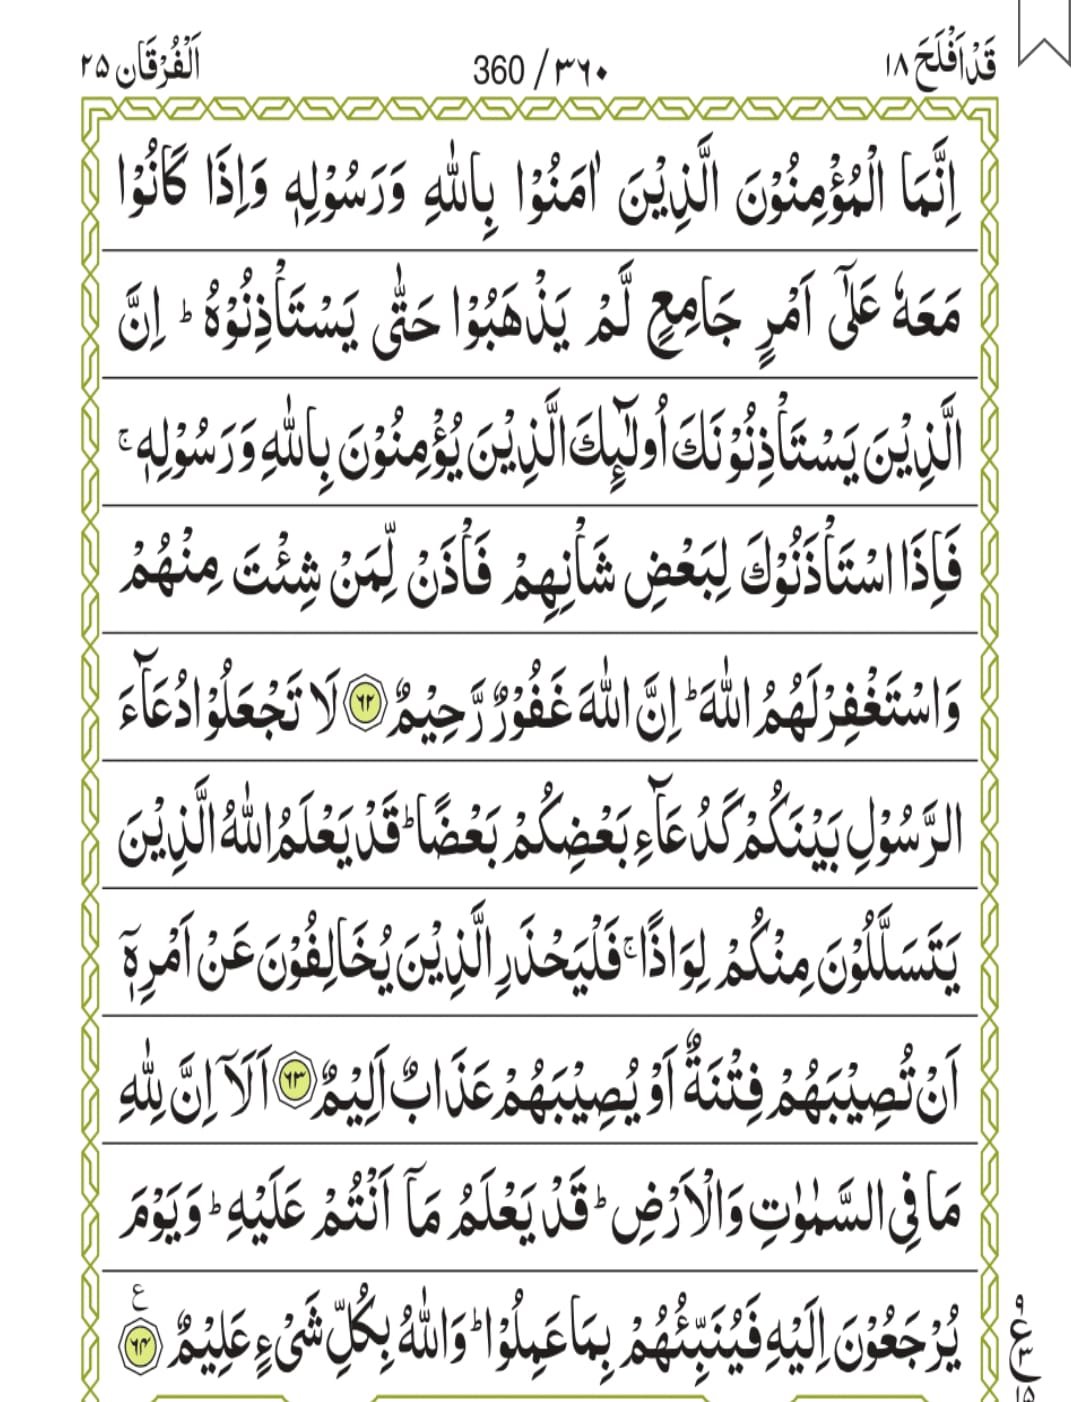 قَدْ اَفْلَحَ ١٨ 360 / ٣٦٠ اَلْفُرْقَان ٢٥
اِنَّمَا الْمُؤْمِنُوْنَ الَّذِيْنَ اٰمَنُوْا بِاللّٰهِ وَرَسُوْلِهٖ وَاِذَا كَانُوْا
مَعَهٗ عَلٰۤى اَمْرٍ جَامِعٍ لَّمْ يَذْهَبُوْا حَتّٰى يَسْتَاْذِنُوْهُ ؕ اِنَّ
الَّذِيْنَ يَسْتَاْذِنُوْنَكَ اُولٰٓئِكَ الَّذِيْنَ يُؤْمِنُوْنَ بِاللّٰهِ وَرَسُوْلِهٖ ۚ
فَاِذَا اسْتَاْذَنُوْكَ لِبَعْضِ شَاْنِهِمْ فَاْذَنْ لِّمَنْ شِئْتَ مِنْهُمْ
وَاسْتَغْفِرْ لَهُمُ اللّٰهَ ؕ اِنَّ اللّٰهَ غَفُوْرٌ رَّحِيْمٌ ٦٢ لَا تَجْعَلُوْا دُعَآءَ
الرَّسُوْلِ بَيْنَكُمْ كَدُعَآءِ بَعْضِكُمْ بَعْضًا ؕ قَدْ يَعْلَمُ اللّٰهُ الَّذِيْنَ
يَتَسَلَّلُوْنَ مِنْكُمْ لِوَاذًا ۚ فَلْيَحْذَرِ الَّذِيْنَ يُخَالِفُوْنَ عَنْ اَمْرِهٖۤ
اَنْ تُصِيْبَهُمْ فِتْنَةٌ اَوْ يُصِيْبَهُمْ عَذَابٌ اَلِيْمٌ ٦٣ اَلَاۤ اِنَّ لِلّٰهِ
مَا فِى السَّمٰوٰتِ وَالْاَرْضِ ؕ قَدْ يَعْلَمُ مَاۤ اَنْتُمْ عَلَيْهِ ؕ وَيَوْمَ
يُرْجَعُوْنَ اِلَيْهِ فَيُنَبِّئُهُمْ بِمَا عَمِلُوْا ؕ وَاللّٰهُ بِكُلِّ شَىْءٍ عَلِيْمٌ ٦٤ ع
٩
ع ٣
١٥